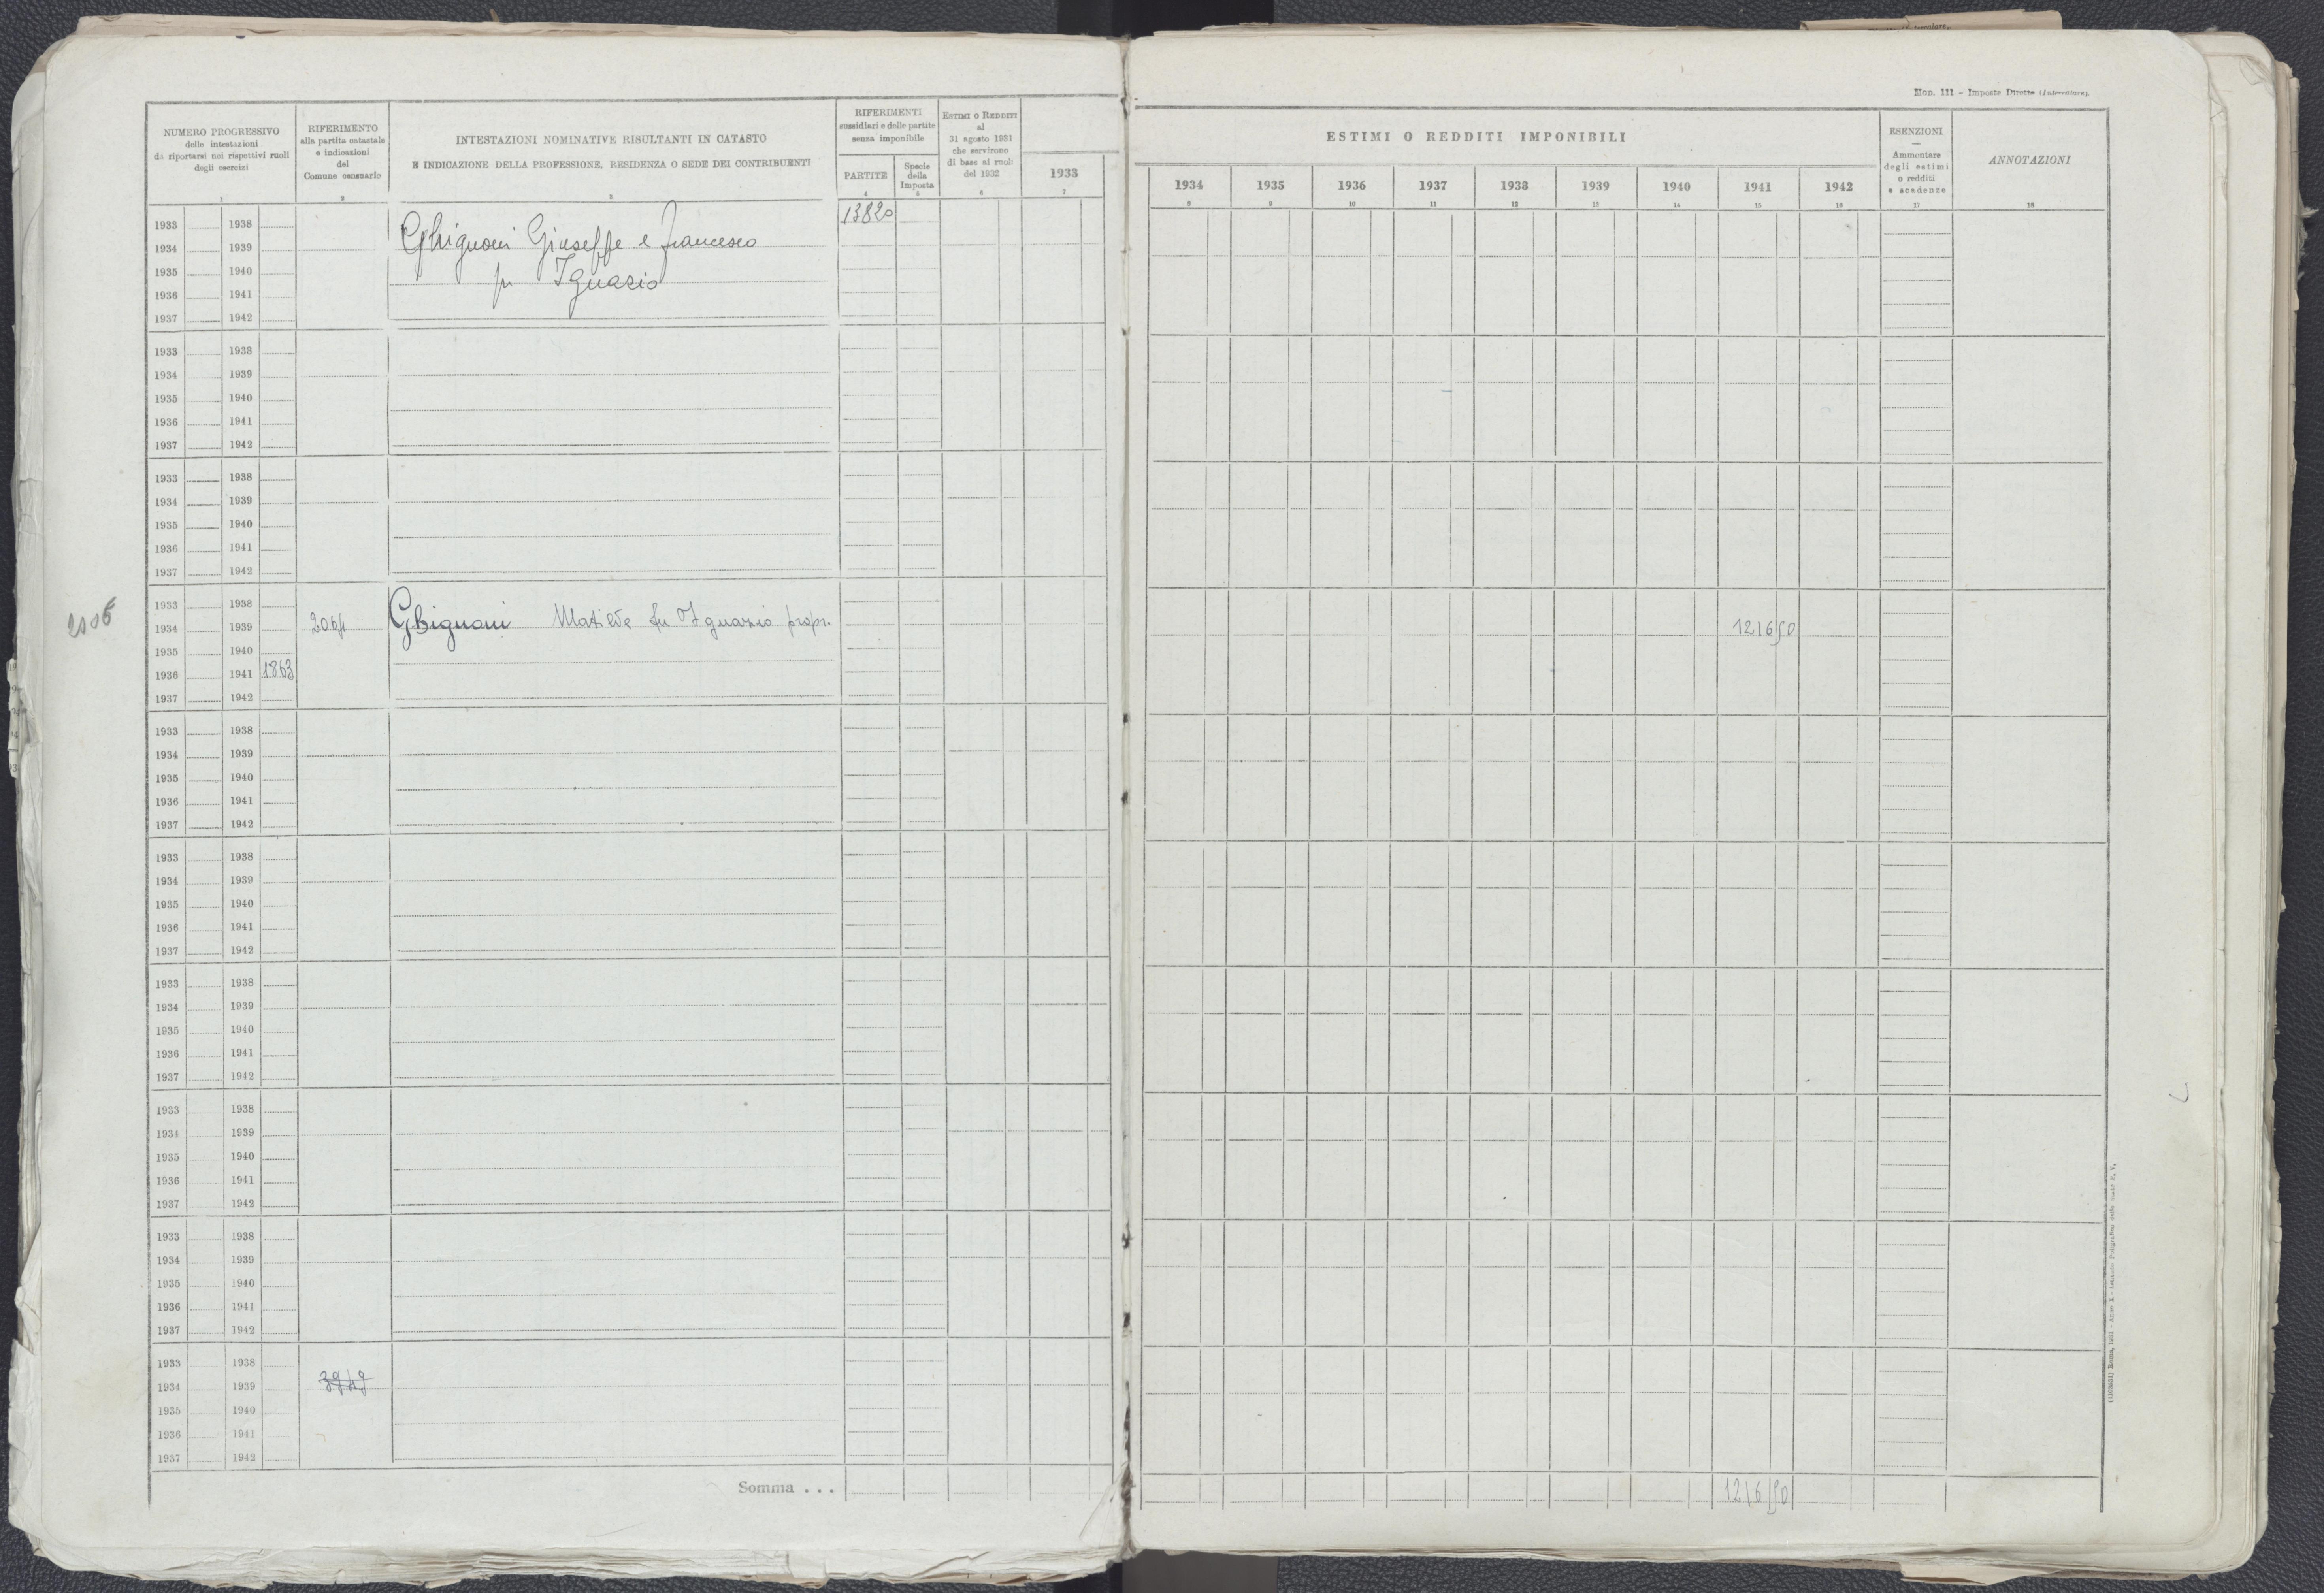 Mod. 111 - Imposte Dirette (Intercalare).
NUMERO PROGRESSIVO
delle intestazioni
da riportarsi nei rispettivi ruoli
degli esercizi
1
RIFERIMENTO
alla partita catastale
e indicazioni
del
Comune censuario
2
INTESTAZIONI NOMINATIVE RISULTANTI IN CATASTO
E INDICAZIONE DELLA PROFESSIONE, RESIDENZA O SEDE DEI CONTRIBUENTI
3
RIFERIMENTI
sussidiari e delle partite
senza imponibile
PARTITE
4
Specie
della
Imposta
5
ESTIMI O REDDITI
al
31 agosto 1931
che servirono
di base ai ruoli
del 1932
6
1933
7
ESTIMI O REDDITI IMPONIBILI
1934 1935 1936 1937 1938 1939 1940 1941 1942
8 9 10 11 12 13 14 15 16
ESENZIONI
—
Ammontare
degli estimi
o redditi
e scadenze
17
ANNOTAZIONI
18
1933 1938 13820
1934 1939 Ghignoni Giuseppe e Francesco
1935 1940 fu Ignazio
1936 1941
1937 1942
1933 1938
1934 1939
1935 1940
1936 1941
1937 1942
1933 1938
1934 1939
1935 1940
1936 1941
1937 1942
1933 1938
1934 1939 Ghignoni Matilde fu Ignazio propr. 1216 50
1935 1940
1936 1941 1863
1937 1942
1933 1938
1934 1939
1935 1940
1936 1941
1937 1942
1933 1938
1934 1939
1935 1940
1936 1941
1937 1942
1933 1938
1934 1939
1935 1940
1936 1941
1937 1942
1933 1938
1934 1939
1935 1940
1936 1941
1937 1942
1933 1938
1934 1939
1935 1940
1936 1941
1937 1942
1933 1938
1934 1939
1935 1940
1936 1941
1937 1942
Somma . . . 1216 50